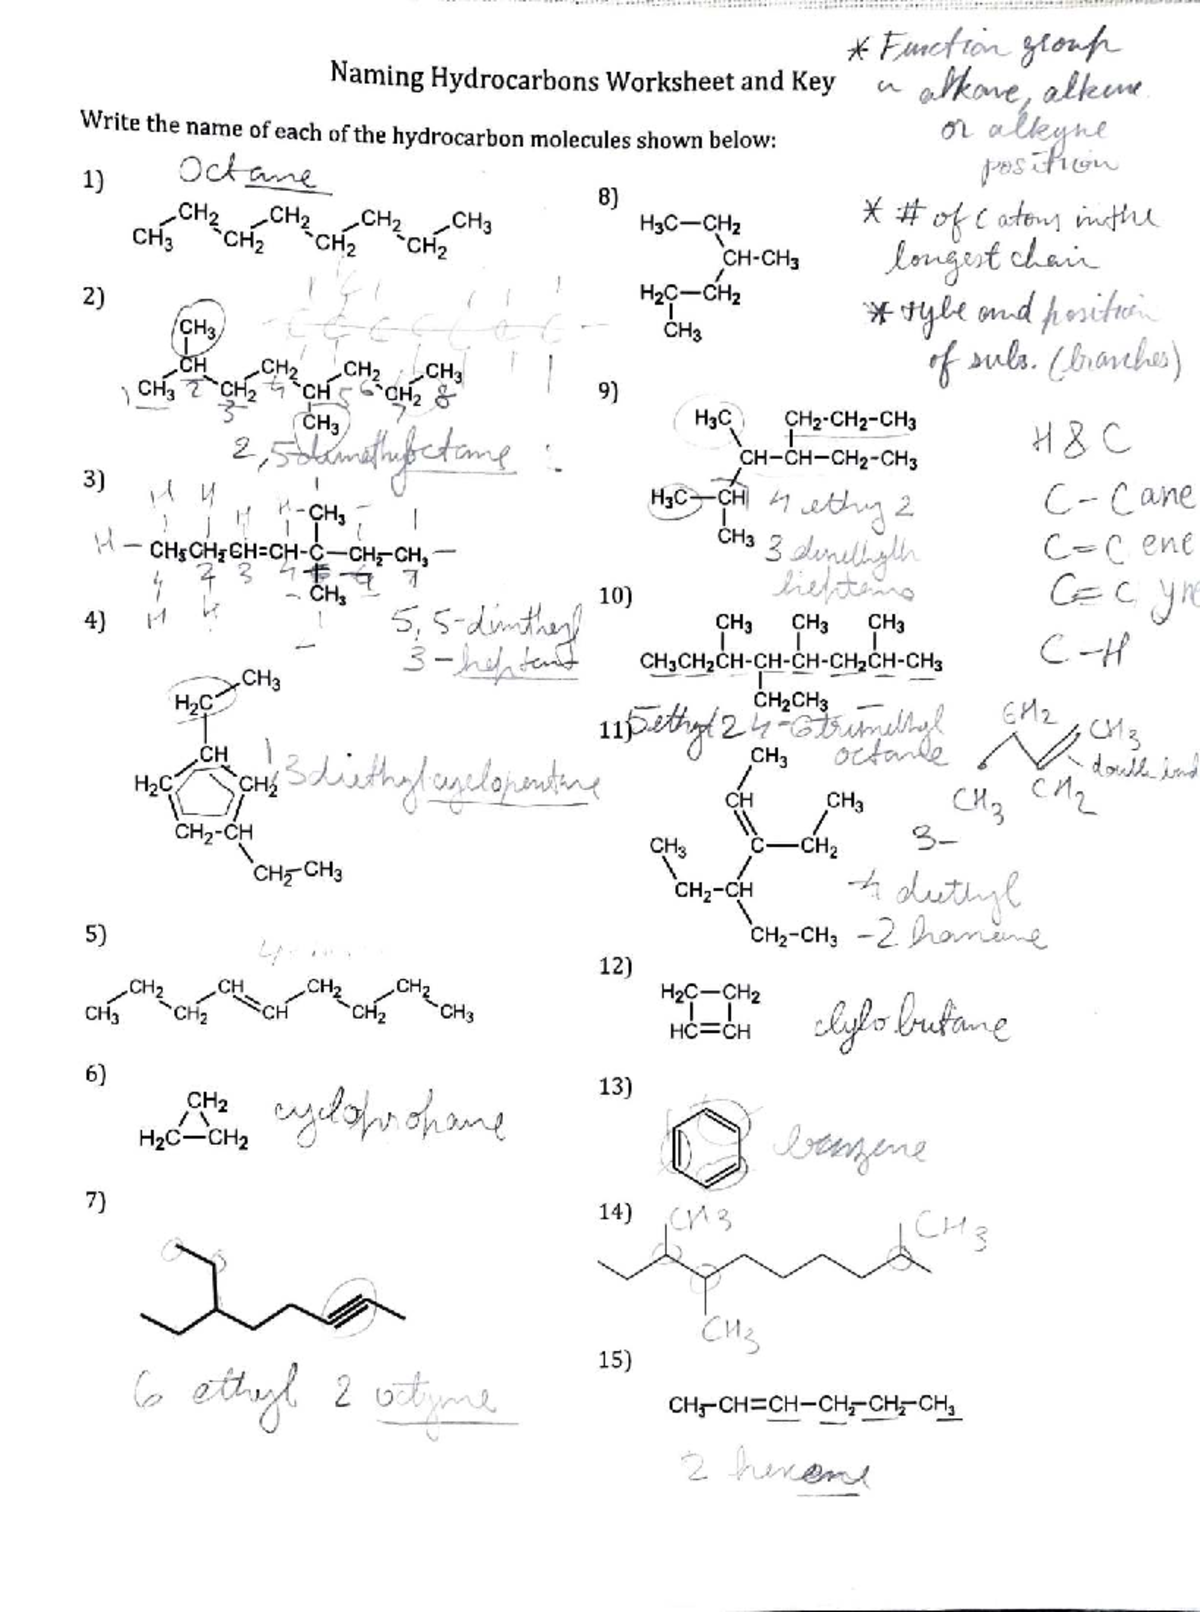 Naming Hydrocarbons Worksheet and Key
* Function group
alkane, alkene
or alkyne
position
* # of C atoms in the
longest chain
* type and position
of subs. (branches)
H & C
C - C ane
C = C ene
C ≡ C yne
C - H
Write the name of each of the hydrocarbon molecules shown below:
1) Octane
CH2 CH2 CH2 CH3
CH3 CH2 CH2 CH2
2)
CH3
CH CH2 CH2 CH3
CH3 CH2 CH CH2
1 2 3 4 5 6 7 8
CH3
2,5 dimethyloctane
3)
H-CH3
H - CH3CH2CH=CH-C-CH2-CH3
CH3
5, 5-dimtheyl
3 - heptane
4)
CH3
H2C
CH
H2C CH2
CH2-CH
CH2-CH3
1 3 diethyl cyclopentane
5)
CH2 CH CH2 CH2
CH3 CH2 CH CH2 CH3
6)
CH2
H2C-CH2
cyclopropane
7)
6 ethyl 2 octyne
8)
H3C-CH2
CH-CH3
H2C-CH2
CH3
9)
H3C CH2-CH2-CH3
CH-CH-CH2-CH3
H3C-CH
CH3
4 ethy 2
3 dimethylh
heptane
10)
CH3 CH3 CH3
CH3CH2CH-CH-CH-CH2CH-CH3
CH2CH3
5ethyl 2 4-6trimethyl
octane
11)
CH3
CH CH3
CH3 C-CH2
CH2-CH
CH2-CH3
CH2 CH3
double bond
CH3 CH2
3-
4 diethyl
-2 hexane
12)
H2C-CH2
HC=CH
clylo butane
13)
benzene
14)
CH3 CH3
CH3
15)
CH3-CH=CH-CH2-CH2-CH3
2 hexene